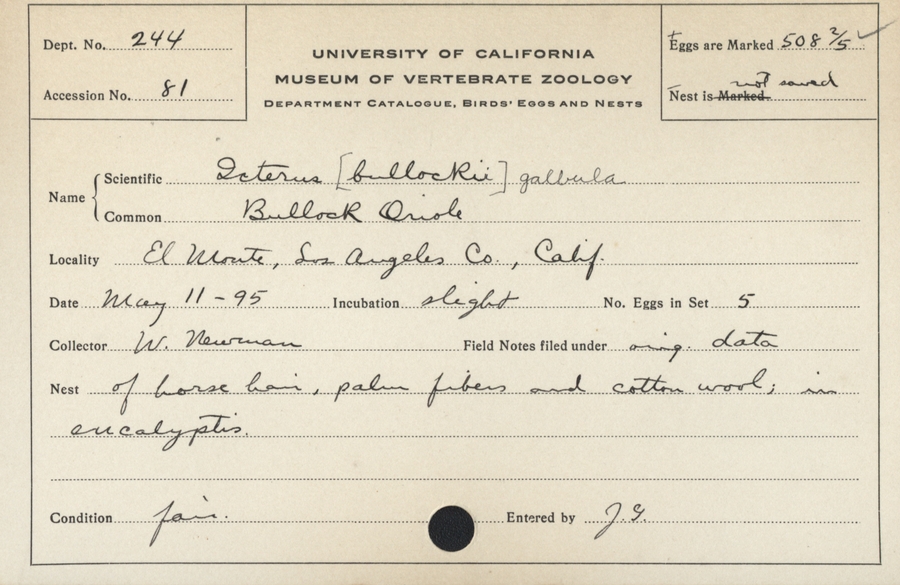 Dept. No. 244
Accession No. 81
UNIVERSITY OF CALIFORNIA
MUSEUM OF VERTEBRATE ZOOLOGY
DEPARTMENT CATALOGUE, BIRDS' EGGS AND NESTS
Eggs are Marked 508 2/5
Nest is Marked not saved
Name
Scientific Icterus [bullockii] galbula
Common Bullock Oriole
Locality El Monte, Los Angeles Co., Calif.
Date May 11-95 Incubation slight No. Eggs in Set 5
Collector W. Newman Field Notes filed under orig. data
Nest of horse hair, palm fibers and cotton wool; in
eucalyptis.
Condition fair. Entered by J.G.